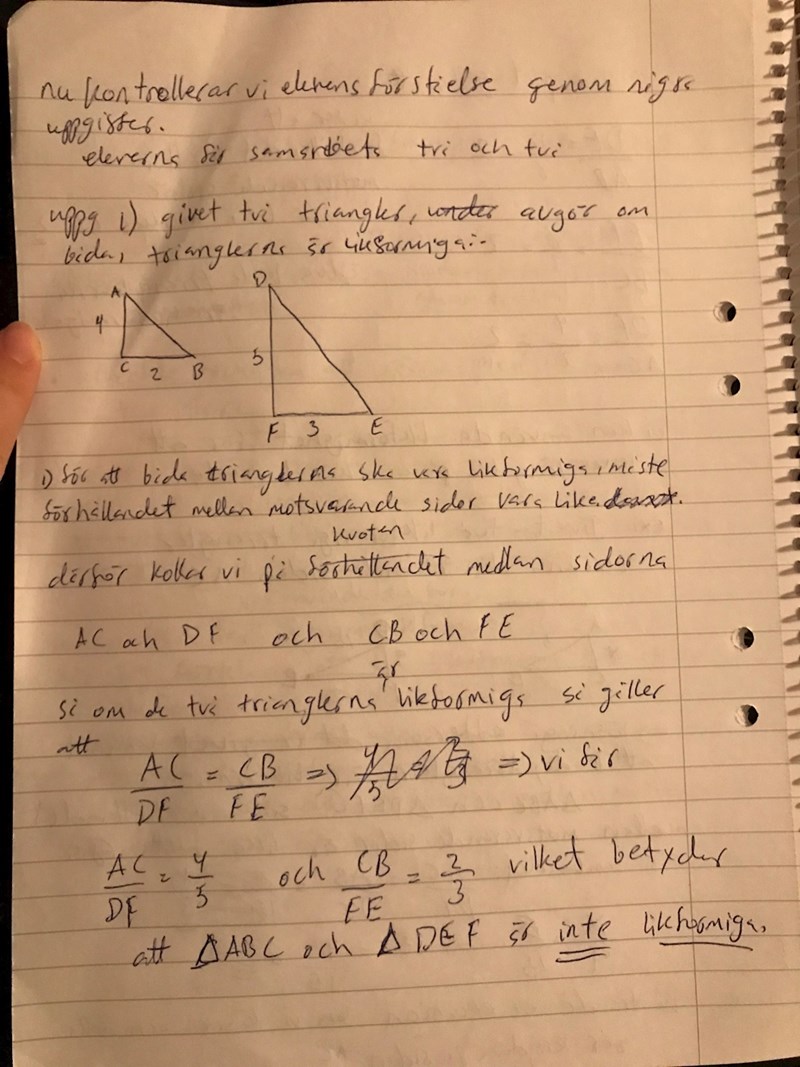 nu kontrollerar vi elevens förståelse genom några
uppgifter.
eleverna får samarbeta två och två
uppg 1) givet två trianglar, avgör om
båda, trianglarna är likformiga:-
A
D
4
5
C 2 B
F 3 E
1) för att båda trianglarna ska vara likformiga, måste
förhållandet mellan motsvarande sidor vara lika.
kvoten
därför kollar vi på förhållandet mellan sidorna
AC och DF och CB och FE
är
så om de två trianglarna likformiga så gäller
att
AC/DF = CB/FE => => vi får
AC/DF = 4/5 och CB/FE = 2/3 vilket betyder
att ΔABC och Δ DEF är inte likformiga.